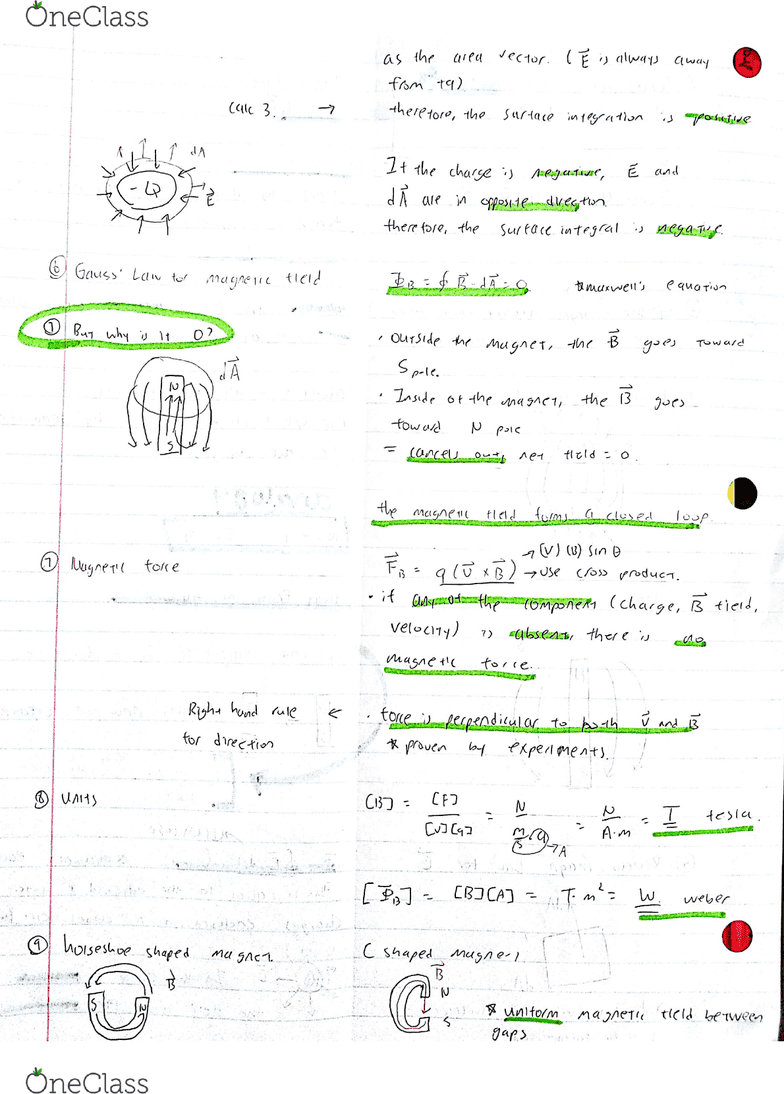 OneClass
as the area vector. (E is always away
from +q)
calc 3.. → therefore, the surface integration is positive
dA
-Q
E
If the charge is negative, E and
dA are in opposite direction
therefore, the surface integral is negative.
⑥ Gauss' Law for magnetic field
Φ_B = ∮ B · dA = 0 *maxwell's equation
⑦ But why is it 0?
dA
N
S
• outside the magnet, the B goes toward
S pole.
• Inside of the magnet, the B goes
toward N pole
= cancels out, net field = 0.
the magnetic field forms a closed loop
→ (V) (B) sin θ
⑦ Magnetic force
F_B = q (V × B) → use cross product.
• if any of the component (charge, B field,
velocity) is absent, there is no
magnetic force.
Right hand rule ←
for direction
• force is perpendicular to both V and B
* proven by experiments.
⑧ units
[B] = [F] / [V][q] = N / (m/s)(q) = N / A·m = T tesla.
→ A
[Φ_B] = [B][A] = T·m² = W. weber
⑨ horseshoe shaped magnet
C shaped magnet
B
S
N
B
N
S
* uniform magnetic field between
gaps
OneClass